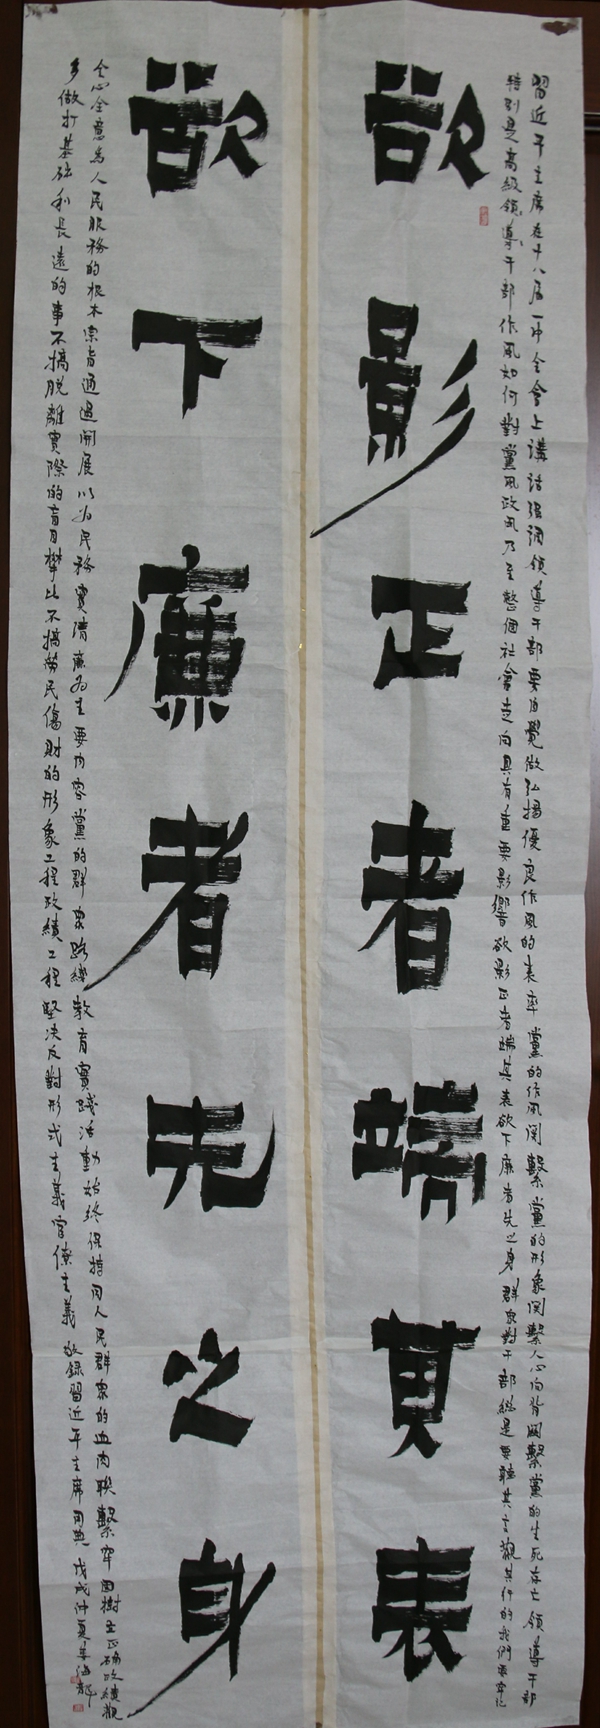 習近平主席在十八届一中全會上講話强調領導干部要自覺做弘揚優良作風的表率黨的作風関繫黨的形象関繫人心向背関繫黨的生死存亡領導干部
特别是高級領導干部作風如何對黨風政風乃至整個社會走向具有重要影響欲影正者端其表欲下廉者先之身群衆對干部總是要聽其言觀其行的我們要牢記
欲影正者端其表
欲下廉者先之身
全心全意為人民服務的根本宗旨通過開展以為民務實清廉為主要内容黨的群衆路綫教育實踐活動始終保持同人民群衆的血肉聯繫牢固樹立正確政績觀
多做打基础利長遠的事不搞脱離實際的盲目攀比不搞勞民傷財的形象工程政績工程堅决反對形式主義官僚主義 敬録習近平主席用典 戊戌仲夏